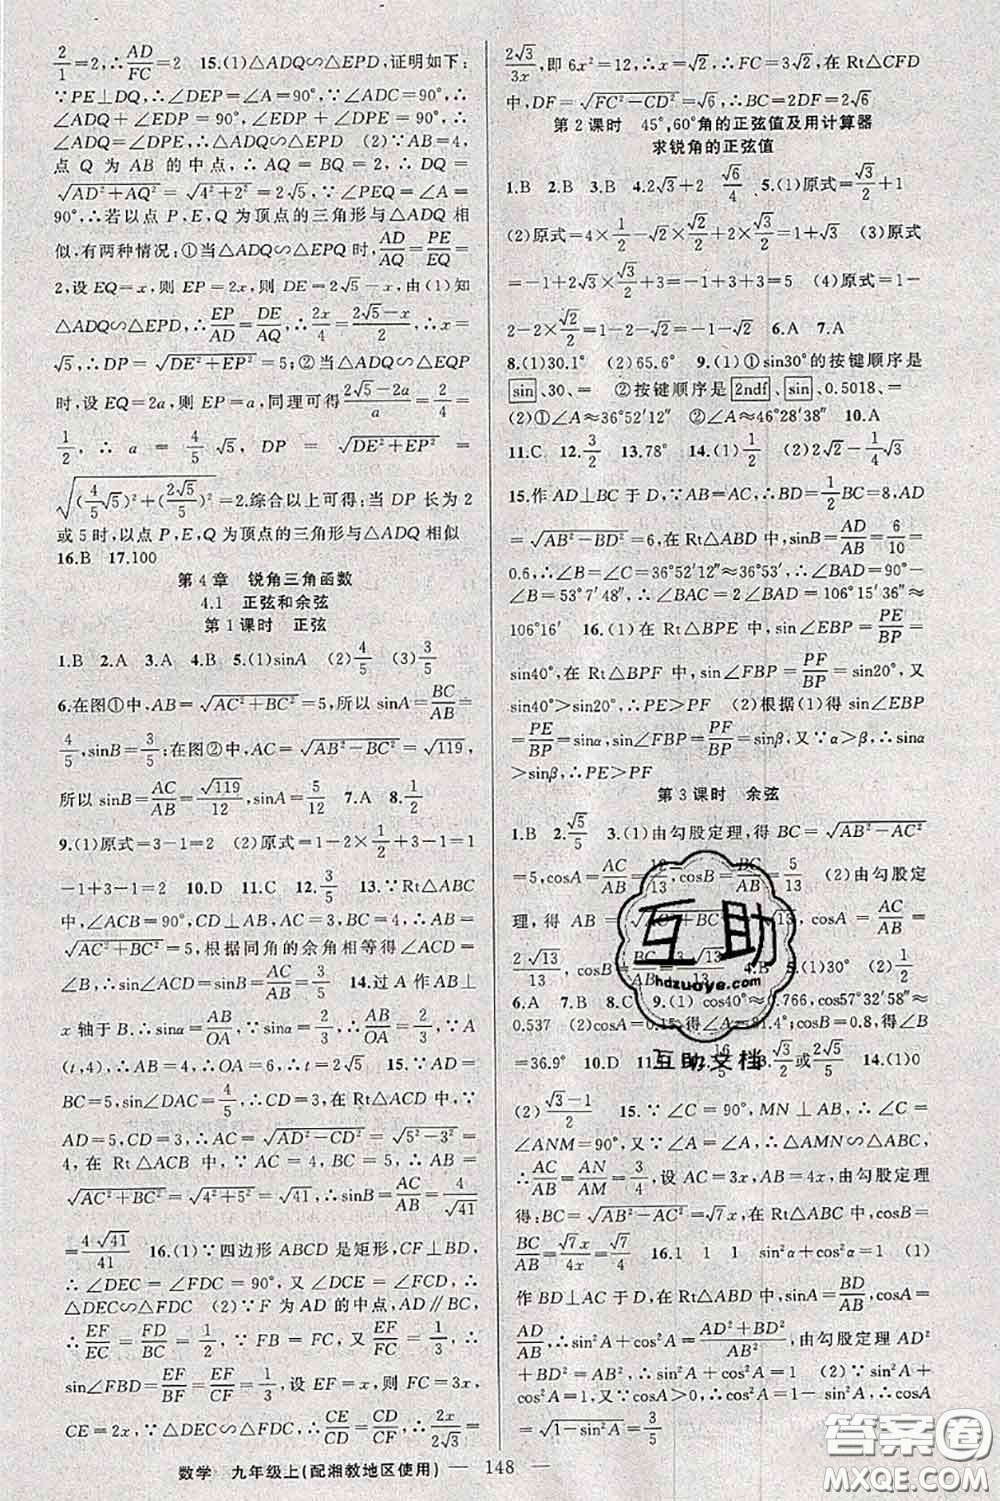 2/1=2,∴AD/FC=2 15.(1)△ADQ∽△EPD,证明如下:
∵PE⊥DQ,∴∠DEP=∠A=90°,∵∠ADC=90°,
∴∠ADQ+∠EDP=90°,∠EDP+∠DPE=90°,
∴∠ADQ=∠DPE,∴△ADQ∽△EPD (2)∵AB=4,
点 Q 为 AB 的中点,∴AQ=BQ=2,∴DQ=
√(AD²+AQ²)=√(4²+2²)=2√5,∵∠PEQ=∠A=
90°,∴若以点 P,E,Q 为顶点的三角形与△ADQ 相
似,有两种情况:①当△ADQ∽△EPQ 时,AD/AQ=PE/EQ=
2,设 EQ=x,则 EP=2x,则 DE=2√5-x,由(1)知
△ADQ∽△EPD,∴EP/AD=DE/AQ,∴2x/4=(2√5-x)/2,∴x=
√5,∴DP=√(DE²+EP²)=5;②当△ADQ∽△EQP
时,设 EQ=2a,则 EP=a,同理可得(2√5-2a)/a=2/4=
1/2,∴a=4/5√5,DP=√(DE²+EP²)=
√((4/5√5)²+(2√5/5)²)=2,综合以上可得:当 DP 长为 2
或5时,以点 P,E,Q 为顶点的三角形与△ADQ 相似
16.B 17.100
第4章 锐角三角函数
4.1 正弦和余弦
第1课时 正弦
1.B 2.A 3.A 4.B 5.(1)sinA (2)4/5 (3)4/5
6.在图①中,AB=√(AC²+BC²)=5,所以 sinA=BC/AB=
4/5,sinB=3/5;在图②中,AC=√(AB²-BC²)=√119,
所以 sinB=AC/AB=√119/12,sinA=5/12 7.A 8.1/2
9.(1)原式=3-1=2 (2)原式=1+3-4×1/2+3-1
=1+3-2+3-1=4 10.D 11.C 12.4/5 13.∵Rt△ABC
中,∠ACB=90°,CD⊥AB,AC=3,BC=4,∴AB=
√(AC²+BC²)=5,根据同角的余角相等得∠ACD=
∠B,∴sin∠ACD=sin∠B=AC/AB=3/5 14.过 A 作 AB⊥
x 轴于 B,∵sinα=AB/OA,∵sinα=4/5,∴AB/OA=4/5,∵A
(t,4),∴AB=4,∴OA=2√5,∴t=2√5 15.∵AD=
BC=5,sin∠DAC=4/5,∴CD=4,在 Rt△ACD 中,∵
AD=5,CD=3,∴AC=√(AD²-CD²)=√(5²-3²)=
4,在 Rt△ACB 中,∵AC=4,BC=5,∴AB=
√(AC²+BC²)=√(4²+5²)=√41,∴sinB=AC/AB=4/√41
=4√41/41 16.(1)∵四边形 ABCD 是矩形,CF⊥BD,
∴∠DEC=∠FDC=90°,又∠DCE=∠FCD,∴
△DEC∽△FDC (2)∵F 为 AD 的中点,AD∥BC,
∴EF/EC=FD/BC=1/2,∵FB=FC,又EF/FC=1/3,∴
sin∠FBD=EF/BF=EF/CF=1/3,设 EF=x,则 FC=3x,
CE=2x,∵△DEC∽△FDC,∴CE/CD=CD/CF,∴2x/2√3=
2√3/3x,即 6x²=12,∴x=√2,∴FC=3√2,在 Rt△CFD
中,DF=√(FC²-CD²)=√6,∴BC=2DF=2√6
第2课时 45°,60°角的正弦值及用计算器
求锐角的正弦值
1.B 2.B 3.B 4.2√3+2 √6/4 5.(1)原式=√3/2+1
(2)原式=4×1/2-√2×√2/2+2×√3/2=1+√3 (3)原式
=-1+2√3×√3/2+1+3=-1+3+3=5 (4)原式=1-
2-2×√2/2=1-2-√2=-1-√2 6.A 7.A
8.(1)30.1° (2)65.6° 9.(1)①sin30°的按键顺序是
sin、30、= ②按键顺序是2ndf、sin、0.5018、=
(2)①∠A≈36°52′12″ ②∠A≈46°28′38″ 10.A
11.C 12.3/2 13.78° 14.(1)1/2 (2)2√2-1/4√3
15.作AD⊥BC于D,∵AB=AC,∴BD=1/2BC=8,AD
=√(AB²-BD²)=6,在Rt△ABD中,sinB=AD/AB=6/10=
0.6,∴∠B=∠C=36°52′12″≈36°52′,∴∠BAD=90°
-∠B=53°7′48″,∴∠BAC=2∠BAD=106°15′36″≈
106°16′ 16.(1)在 Rt△BPE 中,sin∠EBP=PE/BP=
sin40°,在 Rt△BPF 中,sin∠FBP=PF/BP=sin20°,又
sin40°>sin20°,∴PE>PF (2)根据(1)得 sin∠EBP
=PE/BP=sinα,sin∠FBP=PF/BP=sinβ,又∵α>β,∴sinα
>sinβ,∴PE>PF
第3课时 余弦
1.B 2.√5/5 3.(1)由勾股定理,得 BC=√(AB²-AC²)
=5,cosA=AC/AB=12/13,cosB=BC/AB=5/13 (2)由勾股定
理,得 AB=√(AC²+BC²)=√13,cosA=AC/AB=
2√13/13,cosB=BC/AB=3√13/13 4.B 5.(1)30° (2)
6.A 7.B 8.C 9.(1)cos40°≈0.766,cos57°32′58″≈
0.537 (2)cosA=0.15得∠A=81.4°;cosB=0.8,得∠B
=36.9° 10.D 11. 12.16/5 13.√3/2或2√5/5 14.(1)0
(2)(√3-1)/2 15.∵∠C=90°,MN⊥AB,∴∠C=
∠ANM=90°,又∵∠A=∠A,∴△AMN∽△ABC,
∴AC/AB=AN/AM=3/4,设 AC=3x,AB=4x,由勾股定理
得:BC=√(AB²-AC²)=√7x,在 Rt△ABC 中,cosB=
BC/AB=√7x/4x=√7/4 16.1 1 1 sin²α+cos²α=1 (1)
作 BD⊥AC 于 D,在Rt△ABD中,sinA=BD/AB,cosA=
AD/AB,∴sin²A+cos²A=(AD²+BD²)/AB²,由勾股定理 AD²
+BD²=AB²,∴sin²A+cos²A=1 (2)∵sin²A+
cos²A=1,又∵cosA>0,∴sinA=4/5,∴cosA
=√(1-sin²A)=3/5
互助
hdzuoye.com
互助文档
答案圈
MXQE.COM
数学 九年级上(配湘教地区使用) — 148 —